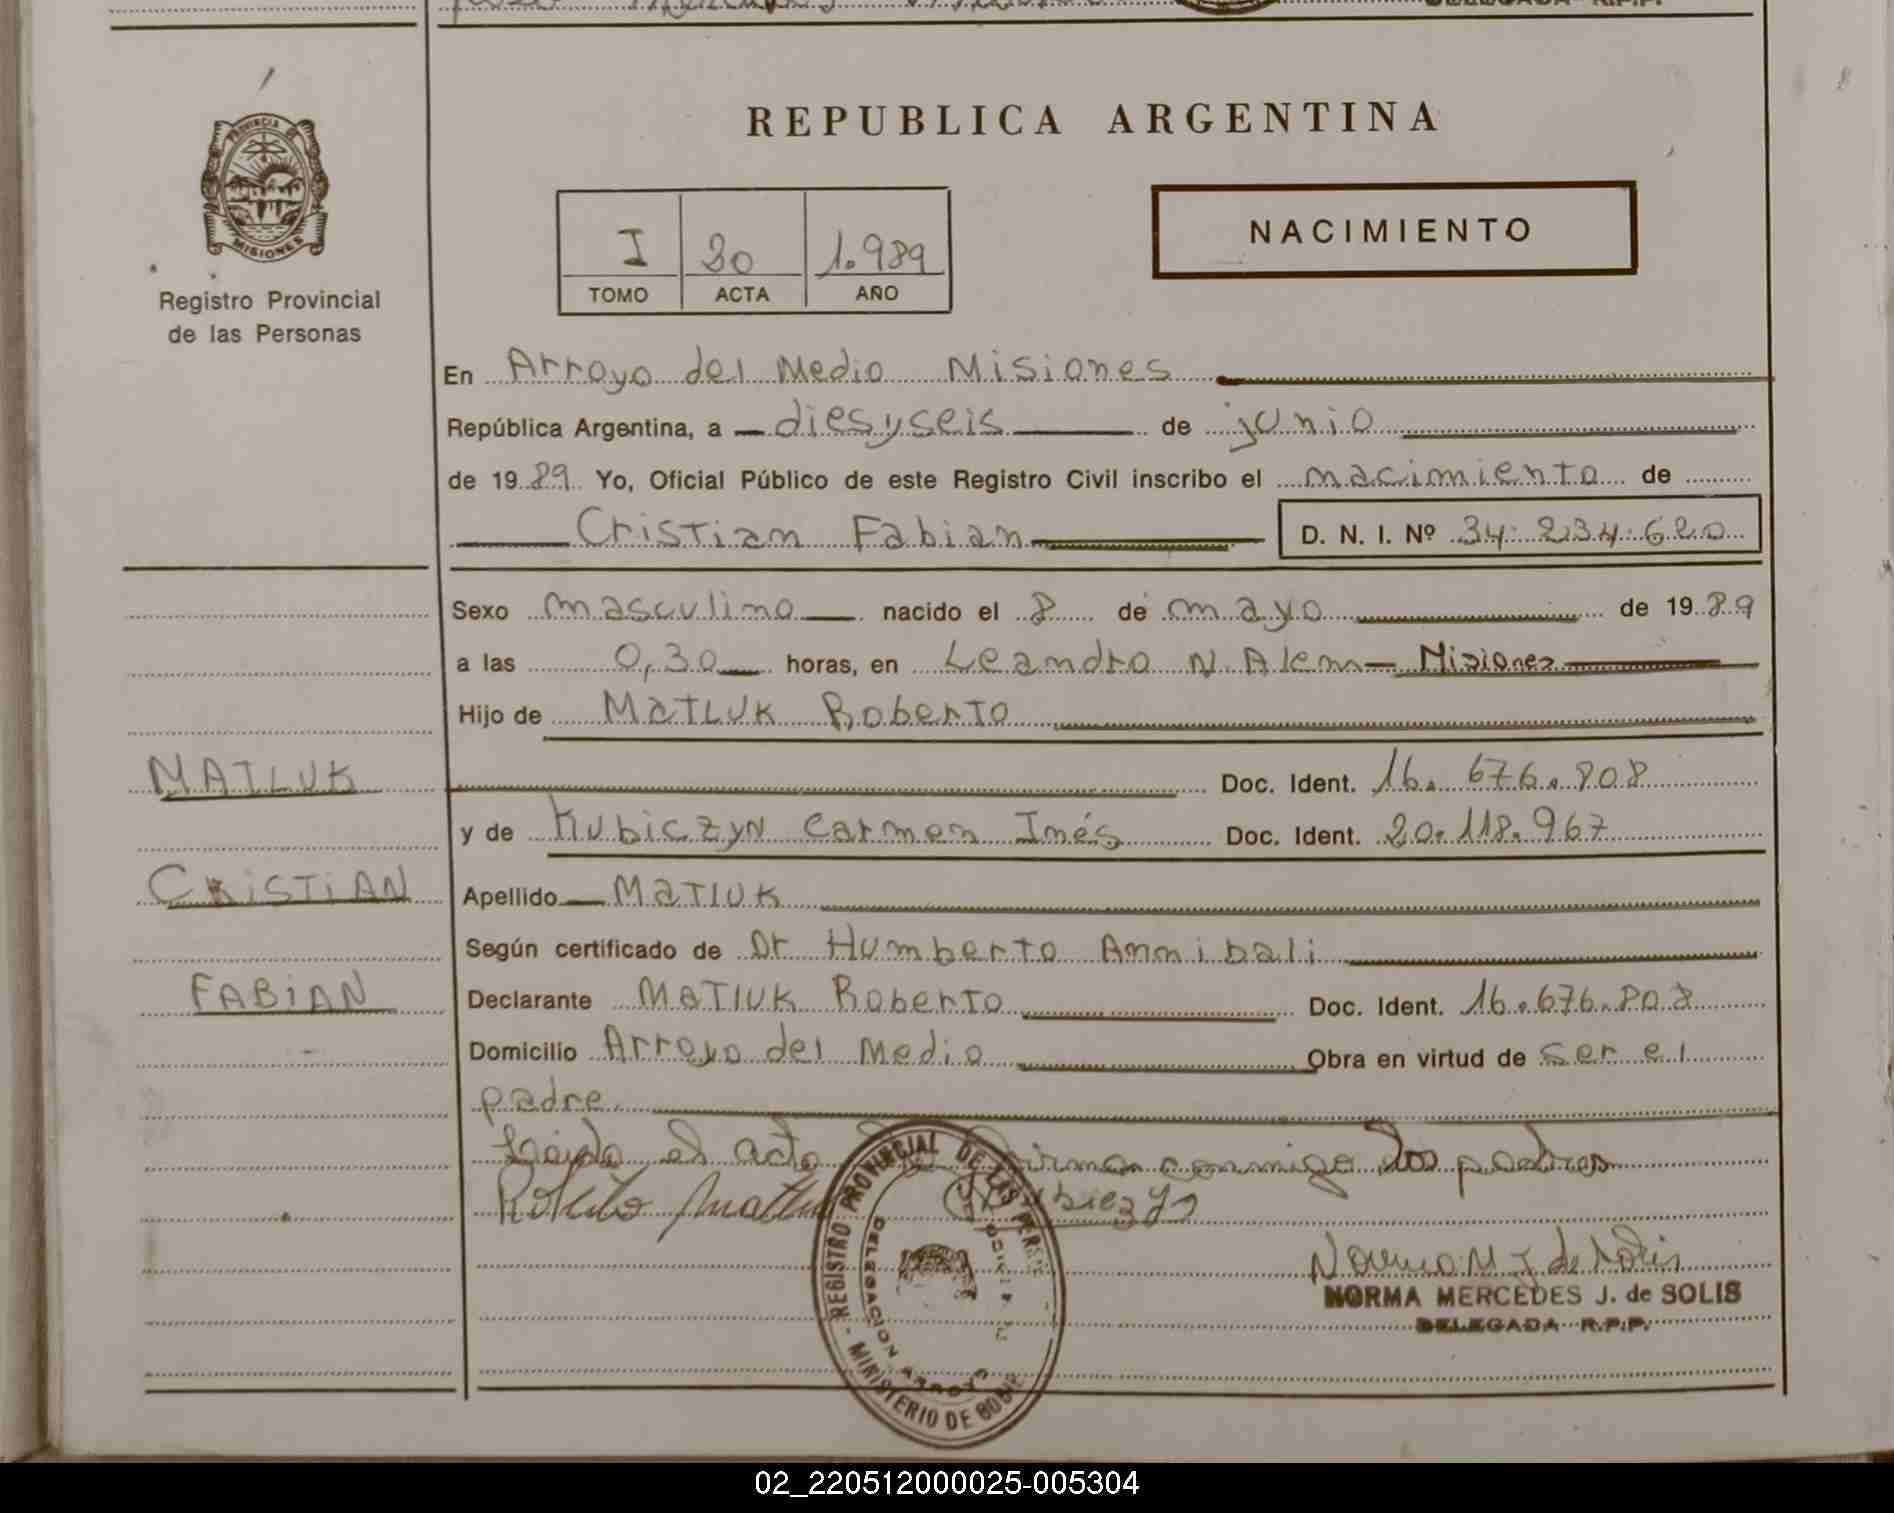 DELEGADA R.P.P.
PROVINCIA DE
MISIONES
Registro Provincial
de las Personas
REPUBLICA ARGENTINA
NACIMIENTO
I 20 1.989
TOMO ACTA AÑO
En Arroyo del Medio Misiones
República Argentina, a diesyseis de junio
de 1989 Yo, Oficial Público de este Registro Civil inscribo el nacimiento de
Cristian Fabian D. N. I. Nº 34.234.620
Sexo masculino nacido el 8 de mayo de 1989
a las 0,30 horas, en Leandro N. Alem Misiones
Hijo de Matluk Roberto
MATLUK
Doc. Ident. 16.676.808
y de Kubiczyn Carmen Inés Doc. Ident. 20.118.967
CRISTIAN
Apellido Matluk
Según certificado de Dr Humberto Annibali
FABIAN
Declarante Matluk Roberto Doc. Ident. 16.676.808
Domicilio Arroyo del Medio Obra en virtud de ser el
padre
Leida el acta firman conmigo los padres
Roberto Matluk
Kubiczyn
Norma M J de Solis
NORMA MERCEDES J. de SOLIS
DELEGADA R.P.P.
REGISTRO PROVINCIAL DE LAS
DELEGACION ARROYO
MINISTERIO DE
02_220512000025-005304